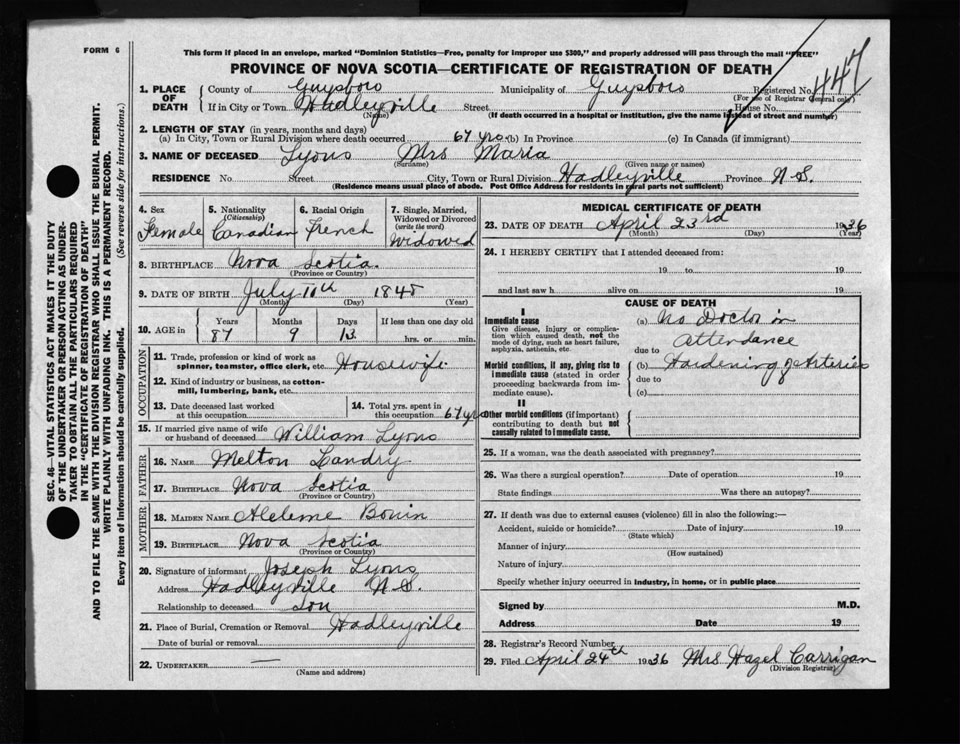 FORM 6
This form if placed in an envelope, marked "Dominion Statistics—Free, penalty for improper use $300," and properly addressed will pass through the mail "FREE"
PROVINCE OF NOVA SCOTIA—CERTIFICATE OF REGISTRATION OF DEATH
447
1. PLACE OF DEATH
County of Guysboro Municipality of Guysboro Registered No.
(For use of Registrar General only)
If in City or Town Hadleyville Street House No.
(Name) (If death occurred in a hospital or institution, give the name instead of street and number)
2. LENGTH OF STAY (in years, months and days)
(a) In City, Town or Rural Division where death occurred 67 yrs (b) In Province (c) In Canada (if immigrant)
3. NAME OF DECEASED Lyons Mrs Maria
(Surname) (Given name or names)
RESIDENCE No. Street City, Town or Rural Division Hadleyville Province N.S.
(Residence means usual place of abode. Post Office Address for residents in rural parts not sufficient)
4. Sex
Female
5. Nationality
(Citizenship)
Canadian
6. Racial Origin
French
7. Single, Married,
Widowed or Divorced
(write the word)
Widowed
8. BIRTHPLACE Nova Scotia.
(Province or Country)
9. DATE OF BIRTH July 10th 1848
(Month) (Day) (Year)
10. AGE in
Years Months Days If less than one day old
87 9 13 hrs. or min.
OCCUPATION
11. Trade, profession or kind of work as
spinner, teamster, office clerk, etc. Housewife
12. Kind of industry or business, as cotton-
mill, lumbering, bank, etc.
13. Date deceased last worked
at this occupation
14. Total yrs. spent in
this occupation 67 yrs
15. If married give name of wife
or husband of deceased William Lyons
FATHER
16. NAME Melton Landry
17. BIRTHPLACE Nova Scotia
(Province or Country)
MOTHER
18. MAIDEN NAME Bonin
19. BIRTHPLACE Nova Scotia
(Province or Country)
20. Signature of informant Joseph Lyons
Address Hadleyville N.S.
Relationship to deceased Son
21. Place of Burial, Cremation or Removal Hadleyville
Date of burial or removal
22. UNDERTAKER —
(Name and address)
MEDICAL CERTIFICATE OF DEATH
23. DATE OF DEATH April 23rd 1936
(Month) (Day) (Year)
24. I HEREBY CERTIFY that I attended deceased from:
19 to 19
and last saw h alive on 19
CAUSE OF DEATH
I
Immediate cause
Give disease, injury or complica-
tion which caused death, not the
mode of dying, such as heart failure,
asphyxia, asthenia, etc.
(a) No Doctor in
attendance
due to
Morbid conditions, if any, giving rise to
immediate cause (stated in order
proceeding backwards from im-
mediate cause).
(b) Hardening of Arteries
due to
(c)
II
Other morbid conditions (if important)
contributing to death but not
causally related to immediate cause.
25. If a woman, was the death associated with pregnancy?
26. Was there a surgical operation? Date of operation 19
State findings Was there an autopsy?
27. If death was due to external causes (violence) fill in also the following:—
Accident, suicide or homicide? Date of injury 19
(State which)
Manner of injury
(How sustained)
Nature of injury
Specify whether injury occurred in industry, in home, or in public place
Signed by M.D.
Address Date 19
28. Registrar's Record Number
29. Filed April 24th 1936 Mrs Hazel Carrigan
(Division Registrar)
SEC. 46—VITAL STATISTICS ACT MAKES IT THE DUTY
OF THE UNDERTAKER OR PERSON ACTING AS UNDER-
TAKER TO OBTAIN ALL THE PARTICULARS REQUIRED
IN THE "CERTIFICATE OF REGISTRATION OF DEATH"
AND TO FILE THE SAME WITH THE DIVISION REGISTRAR WHO SHALL ISSUE THE BURIAL PERMIT.
WRITE PLAINLY WITH UNFADING INK. THIS IS A PERMANENT RECORD.
Every item of information should be carefully supplied. (See reverse side for instructions.)